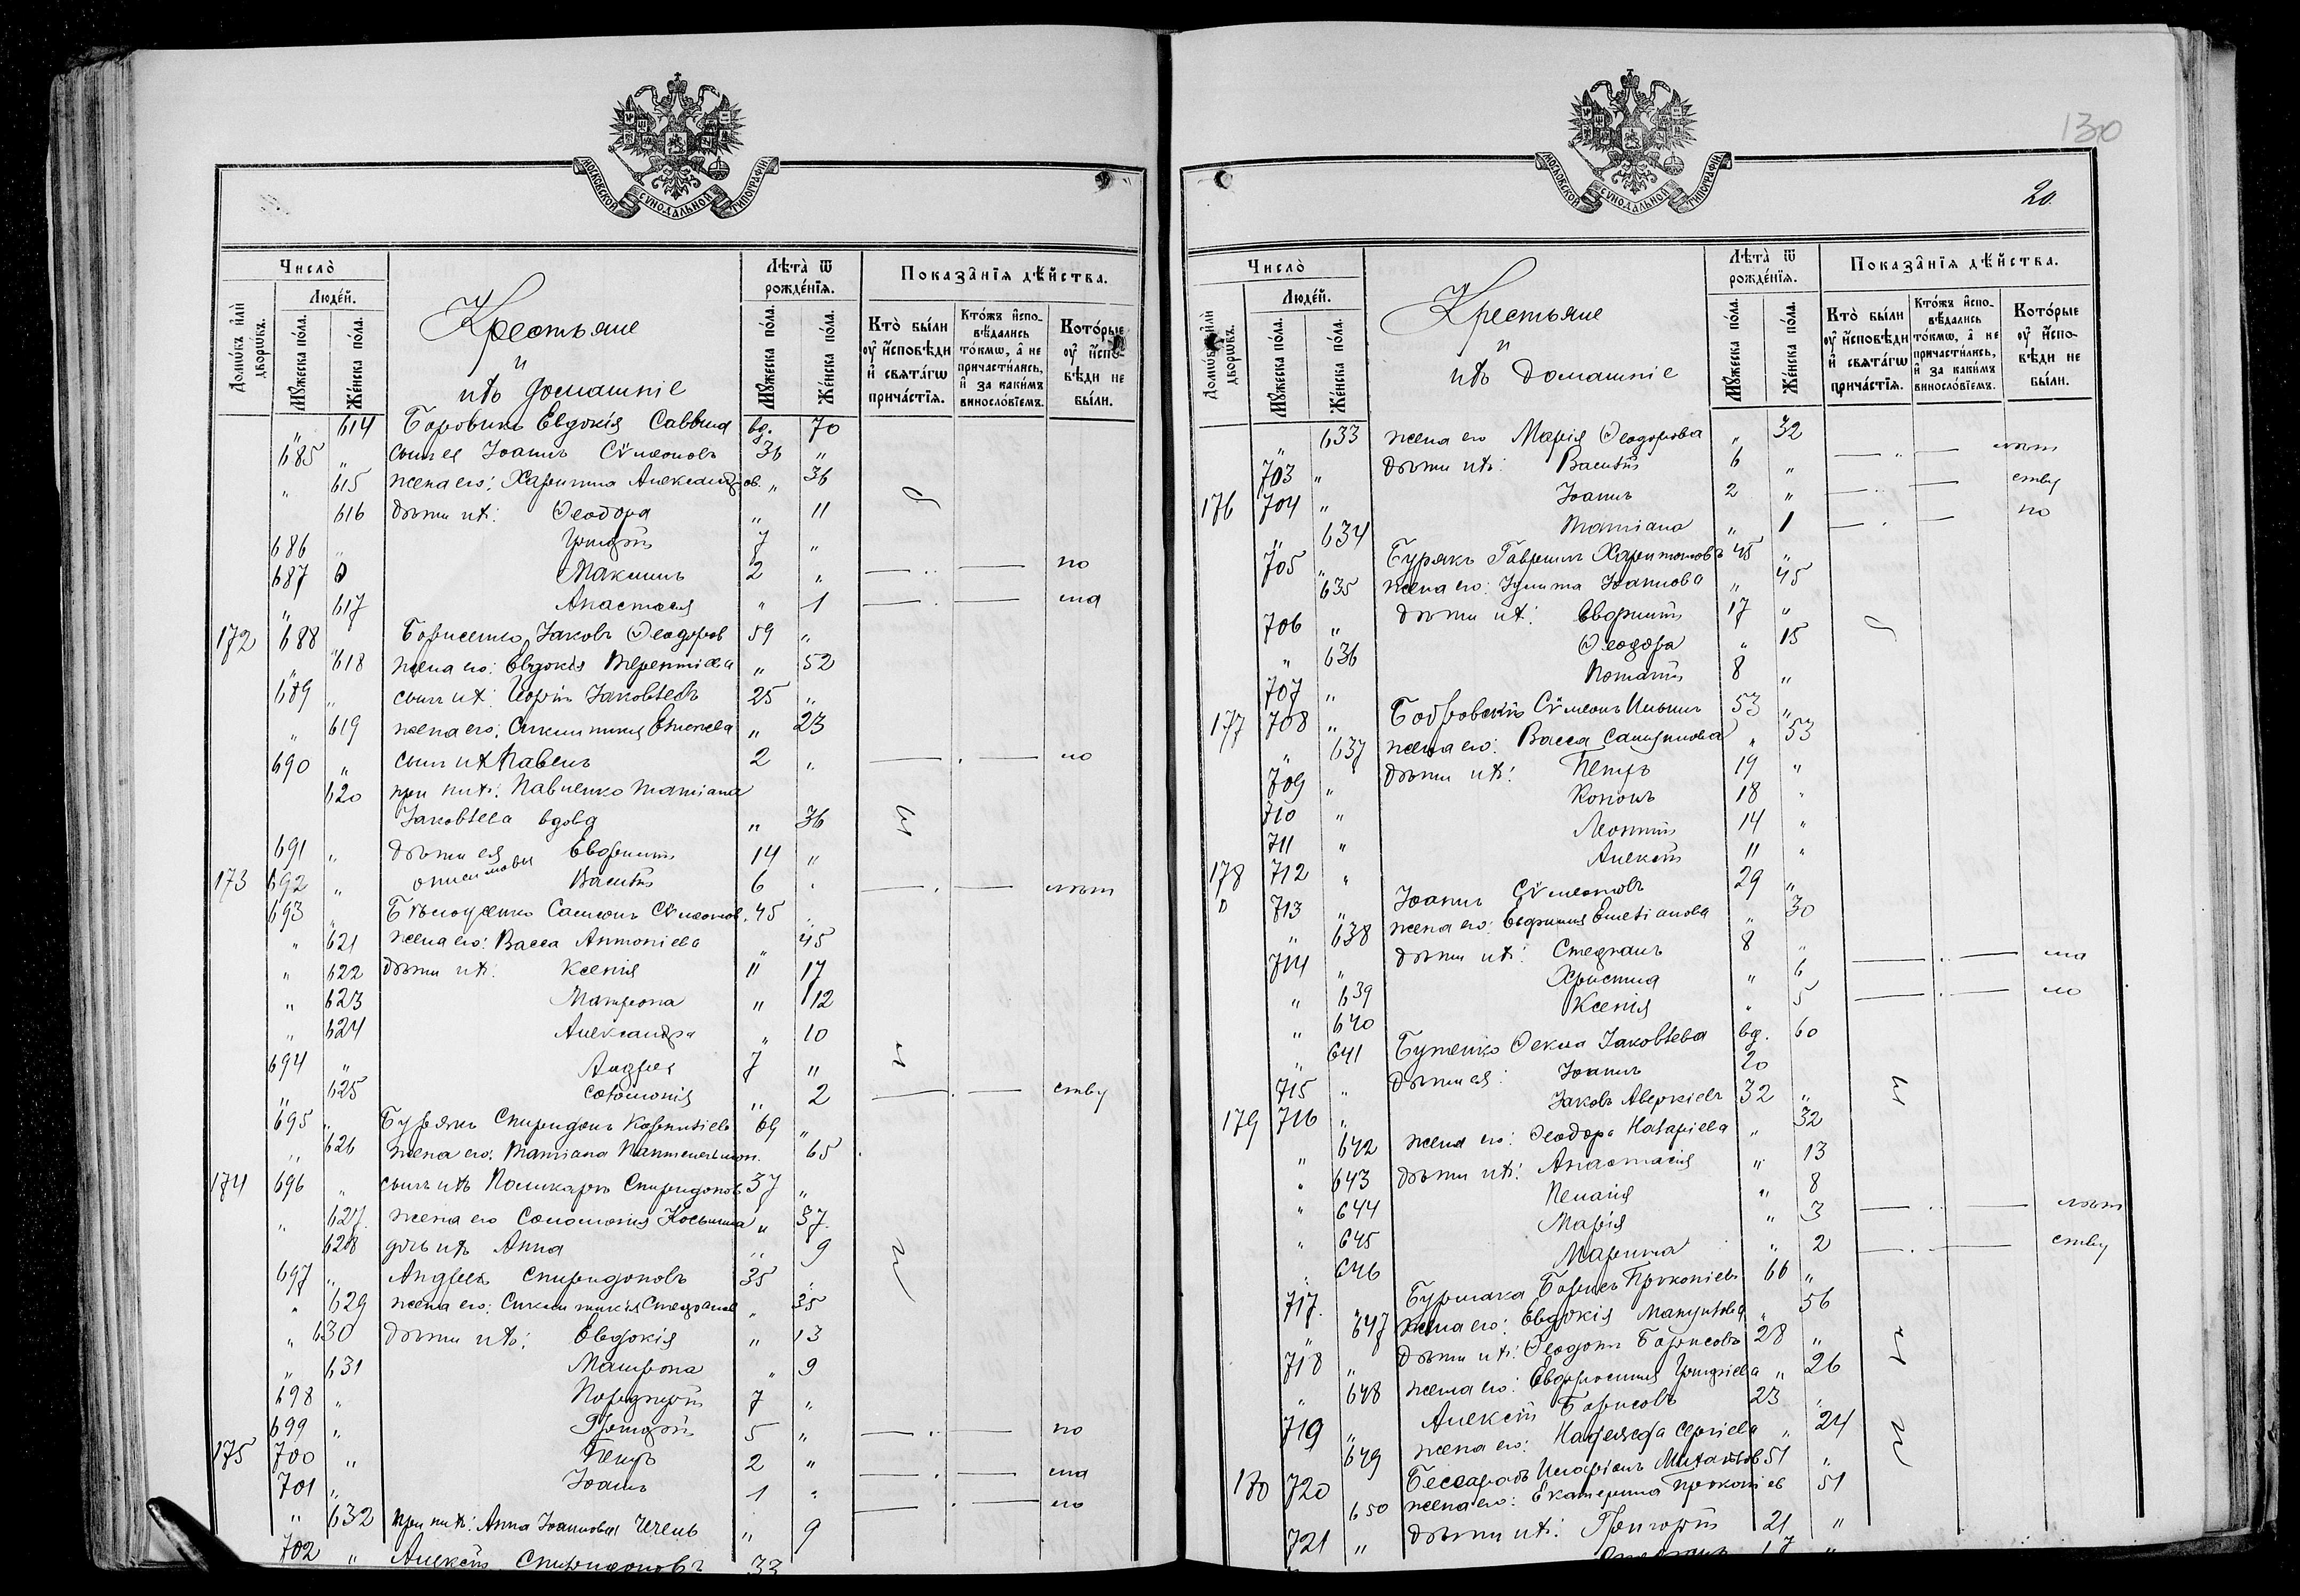 МОСКОВСКОЙ СѴНОДАЛЬНОЙ ТИПОГРАФІИ
Число̀
Домѡ́въ и҆лѝ дворѡ́въ.
Люде́й.
Мꙋ́жеска по́ла.
Же́нска по́ла.
Крестьяне
и
ихъ домашніе
Лѣта̀ ѿ рожде́нїѧ.
Мꙋ́жеска по́ла.
Же́нска по́ла.
Показа̑нїѧ дѣ́йства.
Кто̀ бы́ли оу҆ и҆сповѣ́ди и҆ свѧта́гѡ прича́стїѧ.
Кто́жъ и҆сповѣ́дались то́кмѡ, а҆ не причасти́лись, и҆ за каки́мъ винословїемъ.
Кото́рые оу҆ и҆сповѣ́ди не бы́ли.
" 614 Боровикъ Евдокія Саввина вд. 70
685 " сынъ ея Іоаннъ Сѵмеоновъ 36 "
" 615 жена его: Харитина Александров. " 36
616 дѣти ихъ: Ѳеодора " 11
686 " 7 "
687 Максимъ 2 " — " — по
" 617 Анастасія " 1 — . — ма
172 688 Борисенко Іаковъ Ѳеодоров 59 "
" 618 жена его: Евдокія Терентіева " 52
689 " сынъ ихъ: Іаковлевъ 25 "
" 619 жена его: " 23
690 " сынъ ихъ Павелъ 2 " — . — по
620 при нихъ: Павленко Татіана
Іаковлева вдова " 36
691 " дѣти ея Евфимій 14 "
173 692 " Василій 6 " — . — лѣт
693 " Сампсонъ Сѵмеонов. 45 "
" 621 жена его: Васса Антоніева " 45
" 622 дѣти ихъ: Ксенія " 17
" 623 Матрона " 12
" 624 Александра " 10
694 " Андрей 7 "
" 625 Соломонія " 2 — . — ству
695 " Бурякъ Спиридонъ Корниліевъ 69 "
" 626 жена его: Татіана Пантелеимон. 65
174 696 " сынъ ихъ Поликарпъ Спиридоновъ 37 "
" 627. жена его Соломонія Косьмина " 37.
628 дочь ихъ Анна " 9
697 " Андрей Спиридоновъ 35 "
" 629 жена его: " 35
" 630 дѣти ихъ: Евдокія " 13
" 631 Матрона " 9
698 " Порфирій 7 "
699 " 5 " — " — по
175 700 " Петръ 2 " — . — ма
701 " Іоаннъ 1 " — . — ло
" 632 при нихъ: Анна Іоаннова " 9
702 " Алексѣй Спиридоновъ 33
130
20.
МОСКОВСКОЙ СѴНОДАЛЬНОЙ ТИПОГРАФІИ
Число̀
Домѡ́въ и҆лѝ дворѡ́въ.
Люде́й.
Мꙋ́жеска по́ла.
Же́нска по́ла.
Крестьяне
и
ихъ домашніе
Лѣта̀ ѿ рожде́нїѧ.
Мꙋ́жеска по́ла.
Же́нска по́ла.
Показа̑нїѧ дѣ́йства.
Кто̀ бы́ли оу҆ и҆сповѣ́ди и҆ свѧта́гѡ прича́стїѧ.
Кто́жъ и҆сповѣ́дались то́кмѡ, а҆ не причасти́лись, и҆ за каки́мъ винословїемъ.
Кото́рые оу҆ и҆сповѣ́ди не бы́ли.
" 633 жена его Марія Ѳеодорова " 32
703 " дѣти ихъ: Василій 6 " — " — лѣт
176 704 " Іоаннъ 2 " — . — ству
" 634 Татіана " 1 — . — по
705 " Бурякъ Гавріилъ Харитоновъ 45 "
635 жена его: Іулитта Іоаннова " 45
706 " дѣти ихъ: Евфимій 17 "
" 636 Ѳеодора " 15
707 " Потапій 8 "
177 708 " Бобровскій Сѵмеонъ 53 "
" 637 жена его: Васса " 53
709 " дѣти ихъ: Петръ 19 "
710 " Кононъ 18 "
711 " Леонтій 14 "
178 712 " Алексѣй 11 "
713 " Іоаннъ Сѵмеоновъ 29 "
" 638 жена его: Евфимія Емеліанова " 30
714 " дѣти ихъ: Стефанъ 8 "
" 639 Христина " 6 — " — ма
" 640 Ксенія " 5 — . — ло
" 641 Бутенко Ѳекла Іаковлева вд. 60
715 " дѣти ея: Іоаннъ 20
179 716 " Іаковъ Аверкіевъ 32 "
" 642 жена его: Ѳеодора Назаріева " 32
" 643 дѣти ихъ: Анастасія " 13
" 644 Пелагія " 8
" 645 Марія " 3 — " — лѣт
" 646 Марина " 2 — . — ству
717. " Бурлака Борисъ Прокопіевъ 66 "
" 647 жена его: Евдокія " 56
718 " дѣти ихъ: Ѳеодотъ Борисовъ 28 "
" 648 жена его: Евфросинія " 26
719 " Алексѣй Борисовъ 23 "
649 жена его: Надежда Сергіева " 24
170 720 Бессарабъ Иларіонъ Михаиловъ 51 "
650 жена его: Екатерина Прокопіев 51
721 " дѣти ихъ: Григорій 21 "
17 "